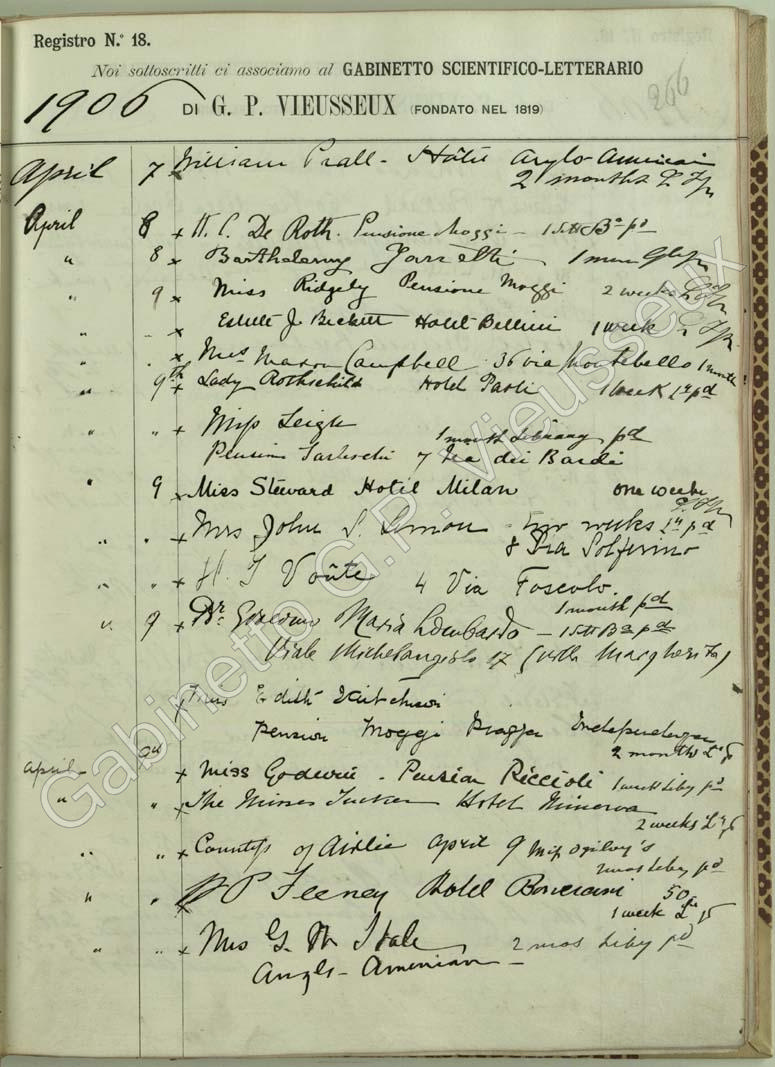 Registro N.º 18.
266
Noi sottoscritti ci associamo al GABINETTO SCIENTIFICO-LETTERARIO
1906 DI G. P. VIEUSSEUX (FONDATO NEL 1819)
April 7 x William Prall - Hôtel Anglo-American
2 months
April 8 x H. C. De Roth. Pensione Moggi - 15th pd
" 8 x Barthelemy 1 mon
" 9 x Miss Ridgely Pensione Moggi 2 weeks
" x Estelle J. Beckett Hotel Bellini 1 week
" x Mrs Mason Campbell 36 via Montebello 1 month
" 9th x Lady Rothschild Hotel Paoli 1 week pd
" " x Miss Leigh 1 month Library pd
Pension 7 Via dei Bardi
" 9 x Miss Steward Hotel Milan one week
" " x Mrs John S. weeks pd
8 Via Solferino
" " x H. J. Voûte 4 Via Foscolo.
1 month pd
" 9 x Dr. Giacomo Maria Lombardo - 15th pd
Viale Michelangiolo 17 (Villa Margherita)
x Miss Edith
Pension Moggi Piazza Indipendenza
2 months
April x Miss Godwin - Pension Riccioli 1 week Liby pd
" " x The Misses Tucker Hotel Minerva
2 weeks
" " x Countess of Airlie April 9 Miss Ogilvy's
2 mos Liby pd
" " x P Feeney Hotel Bonciani 50
1 week
" " x Mrs G. Hale 2 mos Liby pd
Anglo-American -
Gabinetto G.P. Vieusseux